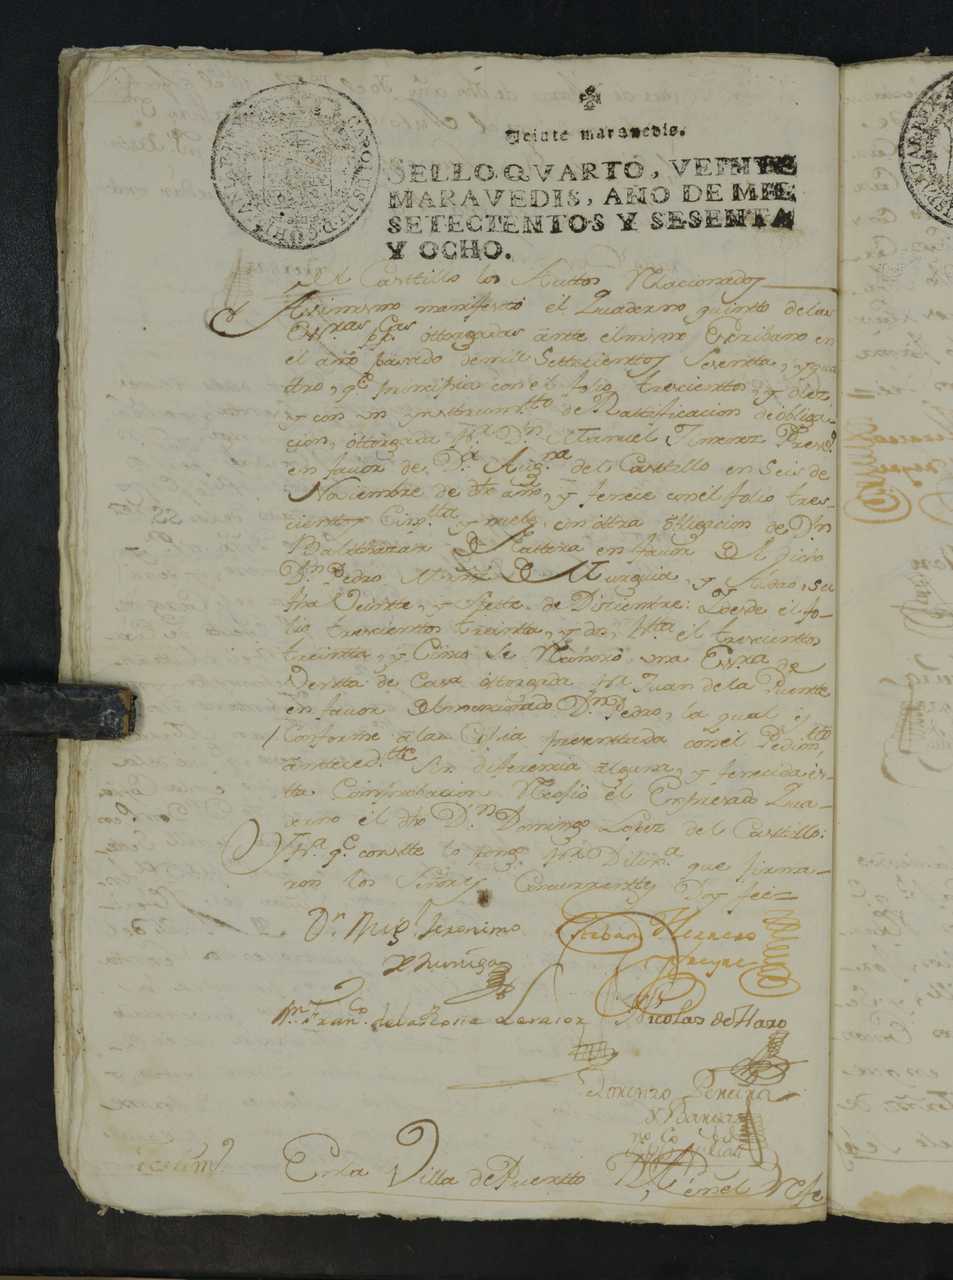 Veinte maravedis.
SELLO QVARTO, VEINTE
MARAVEDIS, AÑO DE MIL
SETECIENTOS Y SESENTA
Y OCHO.
Castillo los Auttos Relacionados
Asimismo manifestó el Quaderno quintto de las
Essras ppcas ottorgadas ante el mismo Escribano en
el año pasado de mil Settecienttos Sesentta, y qua
ttro, qe principia con el folio trescienttos, y diez
y con un Ynstrumtto de Rattificacion de obliga-
cion, ottorgada pr Dn Manuel Ximenez Presvo
en favor de Da Augna del Castillo en Seis de
Noviembre de dho año, y fenece con el folio tres-
cienttos Cinqtta y nuebe con ottra obligacion de Dn
Balthasar de Rattera en favor del dicho
Dn Pedro de Murguia, y
fha Veintte, y Siette de Diziembre: Y desde el fo-
lio trescienttos treintta, y dos, hta el trescienttos
treintta, y Cinco se rexistró una Essra de
Ventta de Casa ottorgada pr Juan de la Puentte
en favor del mencionado Dn Pedro, la qual es
Conforme a la Copia presenttada con el Pedimtto
anteced.tte sin diferencia alguna, y fenecida es-
tta Comprobacion Recojió el Expresado Qua-
derno el dho Dn Domingo Lopez del Castillo:
Y pa qe constte lo pongo pr Dilixa que firma-
ron los Señores Concurrenttes Doy fee
Dr Migl Jeronimo
Zhuniga
Esteban Herrero
Franco de la Nicolas de Haro
Lorenzo Pereira
y
En la Villa de Puertto Rl, en el